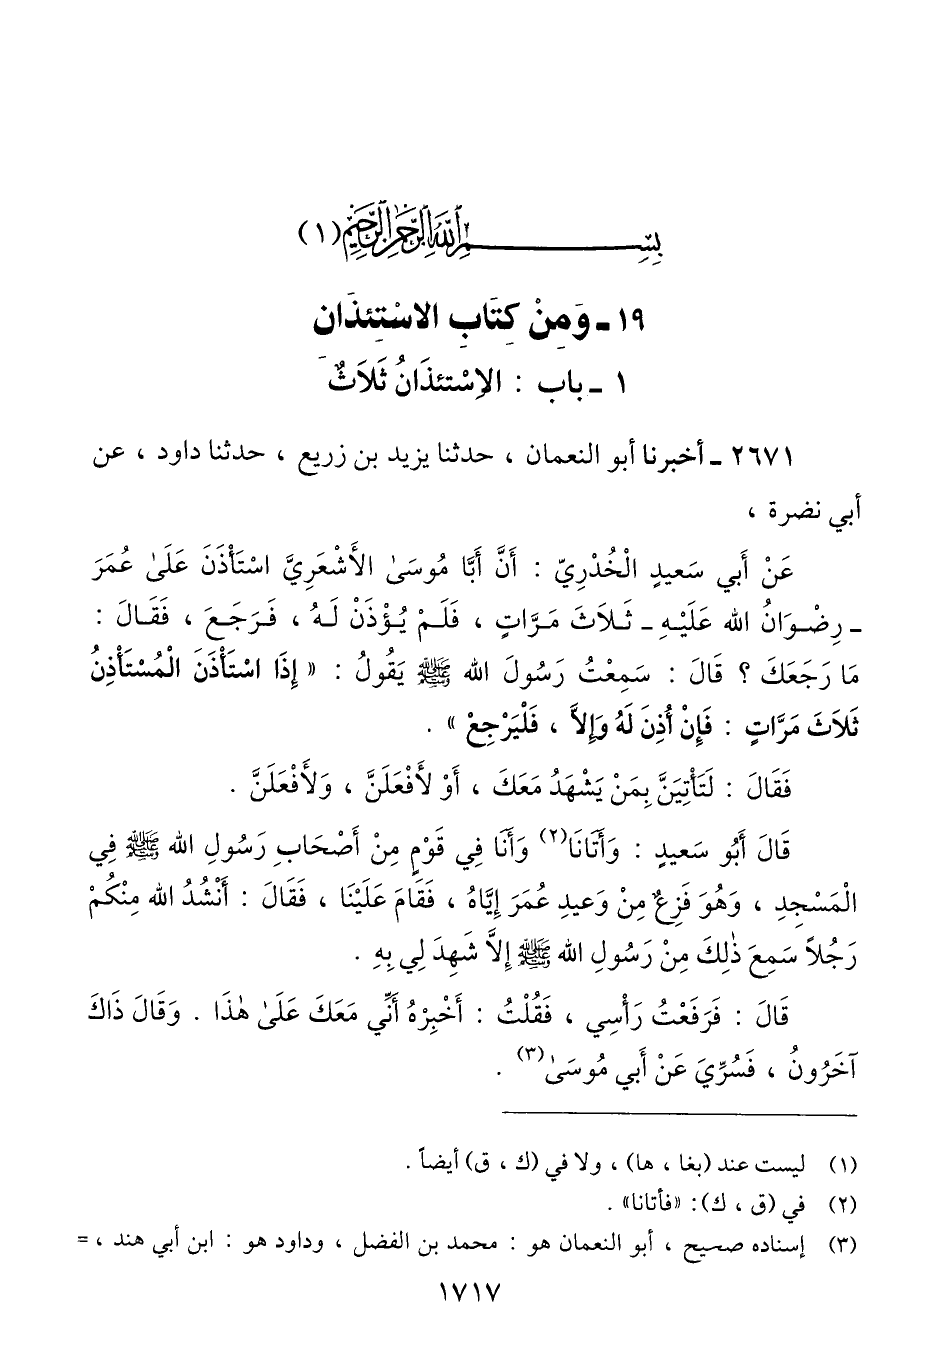 بِسْمِ اللهِ الرَّحْمٰنِ الرَّحِيمِ (١)
١٩ ـ وَمِنْ كِتَابِ الاسْتِئذَان
١ ـ باب : الاِسْتئذَانُ ثَلاَثٌ
٢٦٧١ ـ أخبرنا أبو النعمان ، حدثنا يزيد بن زريع ، حدثنا داود ، عن
أبي نضرة ،
عَنْ أَبي سَعيدٍ الْخُدْرِيّ : أَنَّ أَبَا مُوسَىٰ الأَشْعَرِيَّ اسْتَأْذَنَ عَلَىٰ عُمَرَ
ـ رِضْوَانُ الله عَلَيْهِ ـ ثَلاَثَ مَرَّاتٍ ، فَلَمْ يُؤْذَنْ لَهُ ، فَرَجَعَ ، فَقَالَ :
مَا رَجَعَكَ ؟ قَالَ : سَمِعْتُ رَسُولَ الله ﷺ يَقُولُ : « إِذَا اسْتَأْذَنَ الْمُسْتَأْذِنُ
ثَلاَثَ مَرَّاتٍ : فَإِنْ أُذِنَ لَهُ وَإِلاَّ ، فَلْيَرْجِعْ » .
فَقَالَ : لَتَأْتِيَنَّ بِمَنْ يَشْهَدُ مَعَكَ ، أَوْ لأَفْعَلَنَّ ، وَلأَفْعَلَنَّ .
قَالَ أَبُو سَعيدٍ : وَأَتَانَا(٢) وَأَنَا فِي قَوْمٍ مِنْ أَصْحَابِ رَسُولِ الله ﷺ فِي
الْمَسْجِدِ ، وَهُوَ فَزِعٌ مِنْ وَعيدِ عُمَرَ إِيَّاهُ ، فَقَامَ عَلَيْنَا ، فَقَالَ : أَنْشُدُ الله مِنْكُمْ
رَجُلاً سَمِعَ ذٰلِكَ مِنْ رَسُولِ الله ﷺ إِلاَّ شَهِدَ لِي بِهِ .
قَالَ : فَرَفَعْتُ رَأْسِي ، فَقُلْتُ : أَخْبِرْهُ أَنِّي مَعَكَ عَلَىٰ هٰذَا . وَقَالَ ذَاكَ
آخَرُونُ ، فَسُرِّيَ عَنْ أَبي مُوسَىٰ(٣) .
(١) ليست عند (بغا ، ها) ، ولا في (ك ، ق) أيضاً .
(٢) في (ق ، ك): «فأتانا» .
(٣) إسناده صحيح ، أبو النعمان هو : محمد بن الفضل ، وداود هو : ابن أبي هند ، =
١٧١٧